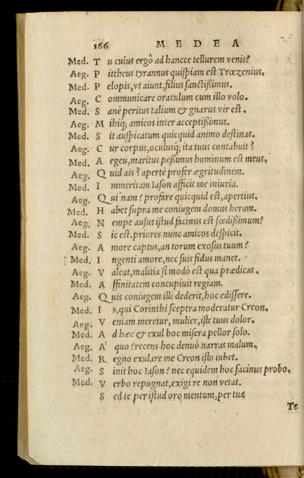 166 MEDEA
Med. T u cuius ergô ad hancce tellurem venis?
Aeg. P ittheus tyrannus quispiam est Trœzenius.
Med. P elopis, vt aiunt, filius sanctißimus.
Aeg. C ommunicare oraculum cum illo volo.
Med. S anè peritus talium & gnarus vir est.
Aeg. M ihiq; amicis inter acceptißimus.
Med. S it auspicatum quicquid animo destinas.
Aeg. C ur corpus, oculusq; ita tuus contabuit?
Med. A egeu, maritus peßimus hominum est meus.
Aeg. Q uid ais? apertè profer ægritudinem.
Med. I mmeritam Iason afficit me iniuria.
Aeg. Q ui nam? profare quicquid est, apertius.
Med. H abet supra me coniugem domus heram.
Aeg. N empe ausus istud facinus est fœdißimum?
Med. S ic est, priores nunc amicos despicit.
Aeg. A more captus, an torum exosus tuum?
Med. I ngenti amore, nec suis fidus manet.
Aeg. V aleat, malitia si modò est qua prædicas.
Med. A ffinitatem concupiuit regiam.
Aeg. Q uis coniugem illi dederit, hoc edissere.
Med. I s, qui Corinthi sceptra moderatur Creon.
Aeg. V eniam meretur, mulier, iste tuus dolor.
Med. A d hæc & exul hoc misera pellor solo.
Aeg. A' quo? recens hoc denuò narras malum.
Med. R egno exulare me Creon isto iubet.
Aeg. S init hoc Iason? nec equidem hoc facinus probo.
Med. V erbo repugnat, exigi re non vetat.
S ed te per istud oro mentum, per tua
Te